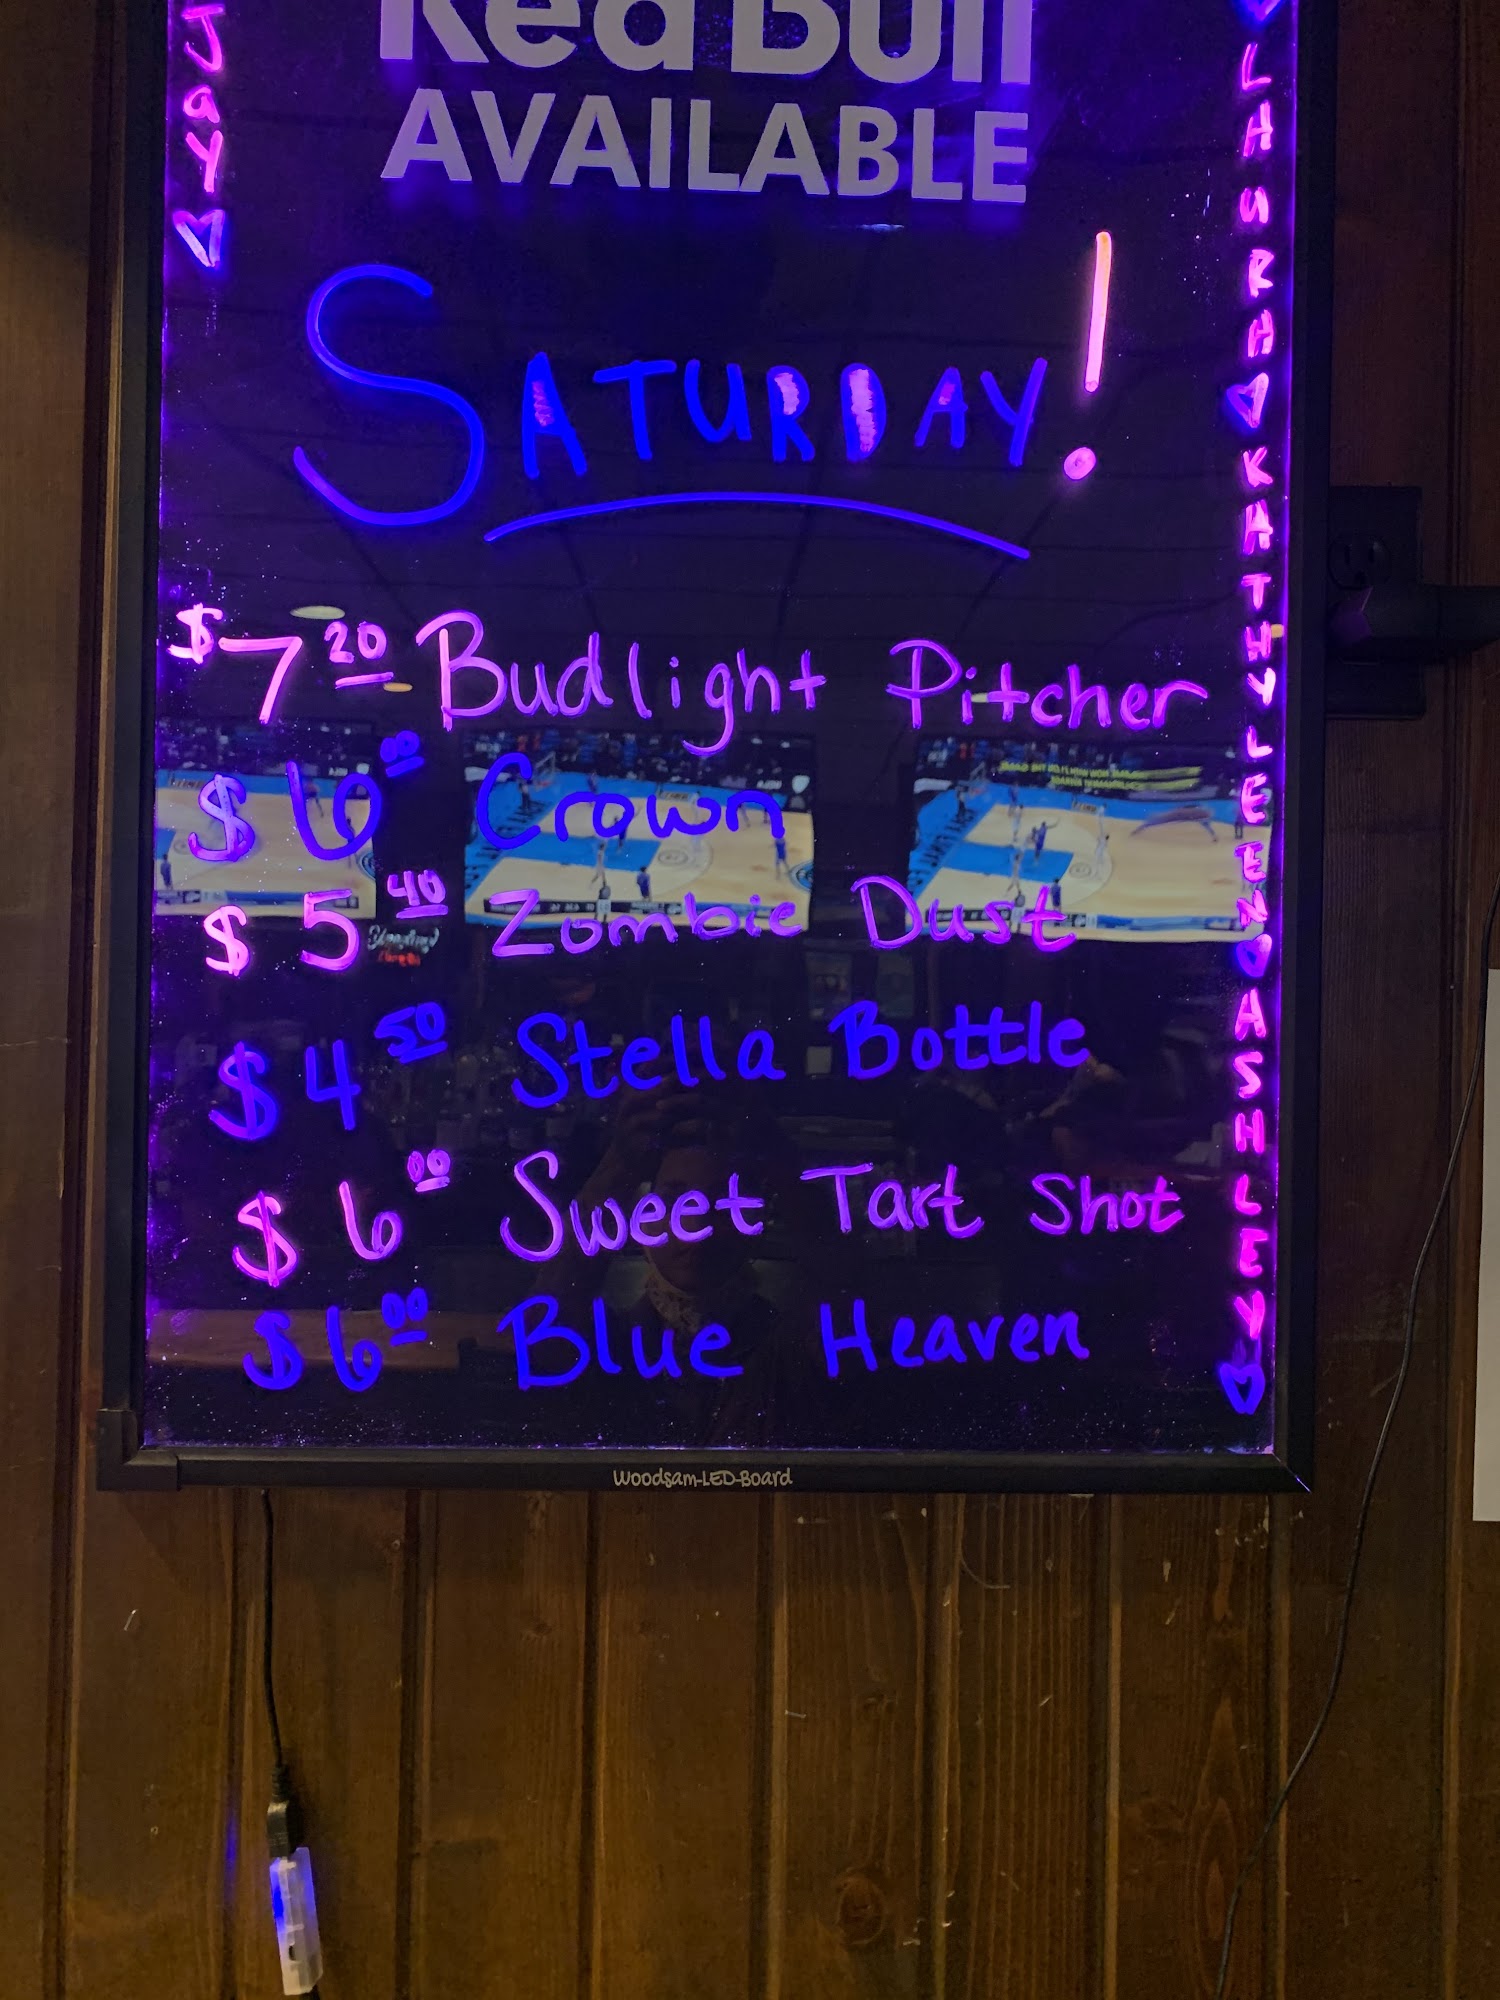 Red Bull
AVAILABLE
Jay
SATURDAY!
$7.20 Budlight Pitcher
$6.00 Crown
$5.40 Zombie Dust
$4.50 Stella Bottle
$6.00 Sweet Tart Shot
$6.00 Blue Heaven
LAURA♡KATHYLEEN♡ASHLEY♡
Woodsam-LED-Board